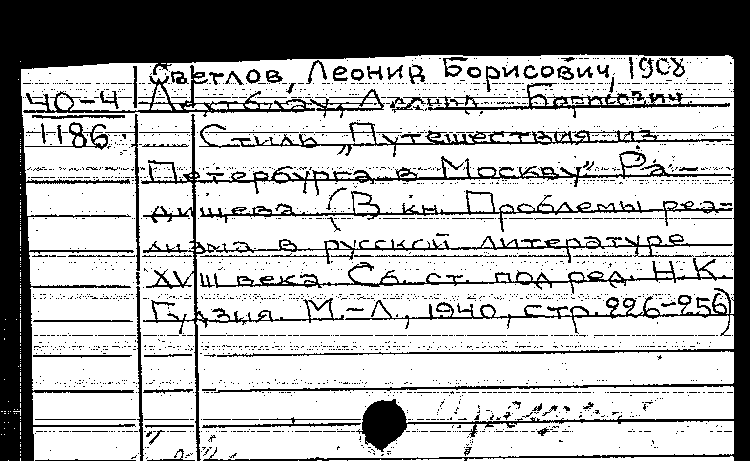 Светлов, Леонид Борисович, 1908
40-4 Лехтблау, Леонид Борисович.
1186. Стиль „Путешествия из
Петербурга в Москву" Ра-
дищева. (В кн. Проблемы реа-
лизма в русской литературе
XVIII века. Сб. ст. под ред. Н.К.
Гудзия. М.-Л., 1940, стр. 226-256)